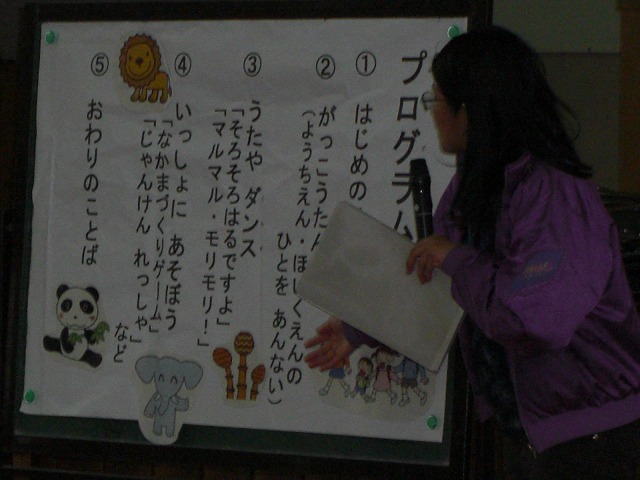 プログラム
① はじめの
② がっこうたん
(ようちえん・ほいくえんの
ひとを あんない)
③ うたや ダンス
「そろそろはるですよ」
「マルマル・モリモリ!」
④ いっしょに あそぼう
「なかまづくりゲーム」
「じゃんけん れっしゃ」
など
⑤ おわりのことば